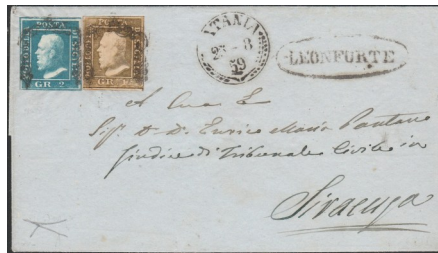 POSTA
DI SICILIA
GR 2
CATANIA
59
LEONFORTE
A Sua E
Sig. D. D. Enrico Maria Pantano
Giudice di Tribunale Civile in
Siracusa